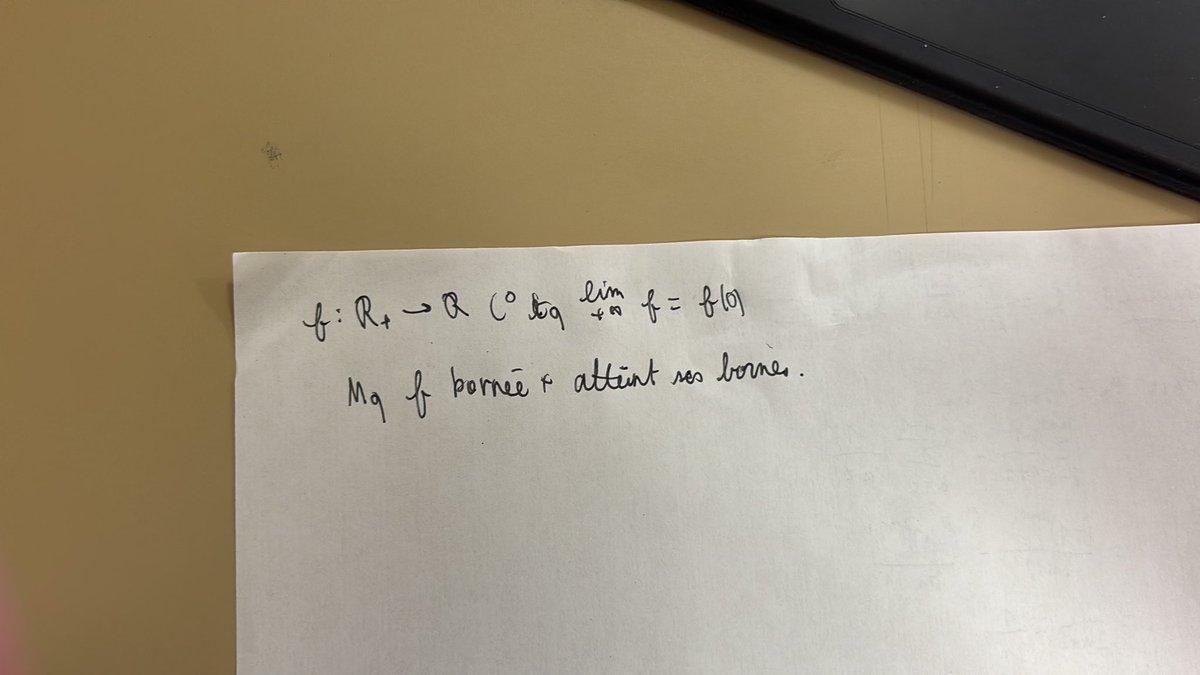 f: ℝ₊ → ℝ C⁰ tq lim f = f(0)
+∞
Mq f bornée + atteint ses bornes.